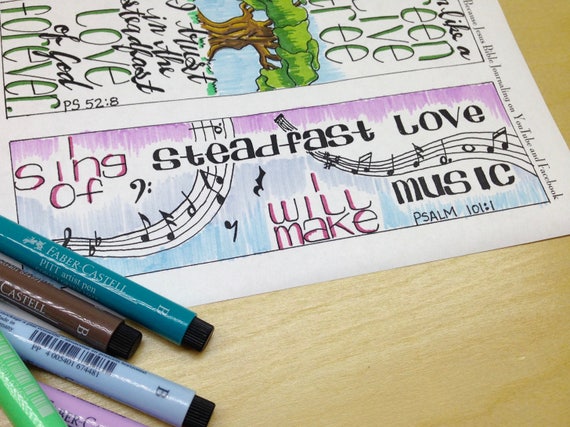 like a
tree
trust
in the
steadfast
Love
of God
forever.
PS 52:8
I Sing of Steadfast Love
I will make music
PSALM 101:1
Because Jesus Bible Journaling on YouTube and Facebook
FABER-CASTELL
PITT artist pen
B
B
PP 4 005401 674481
B
FABER-CASTELL